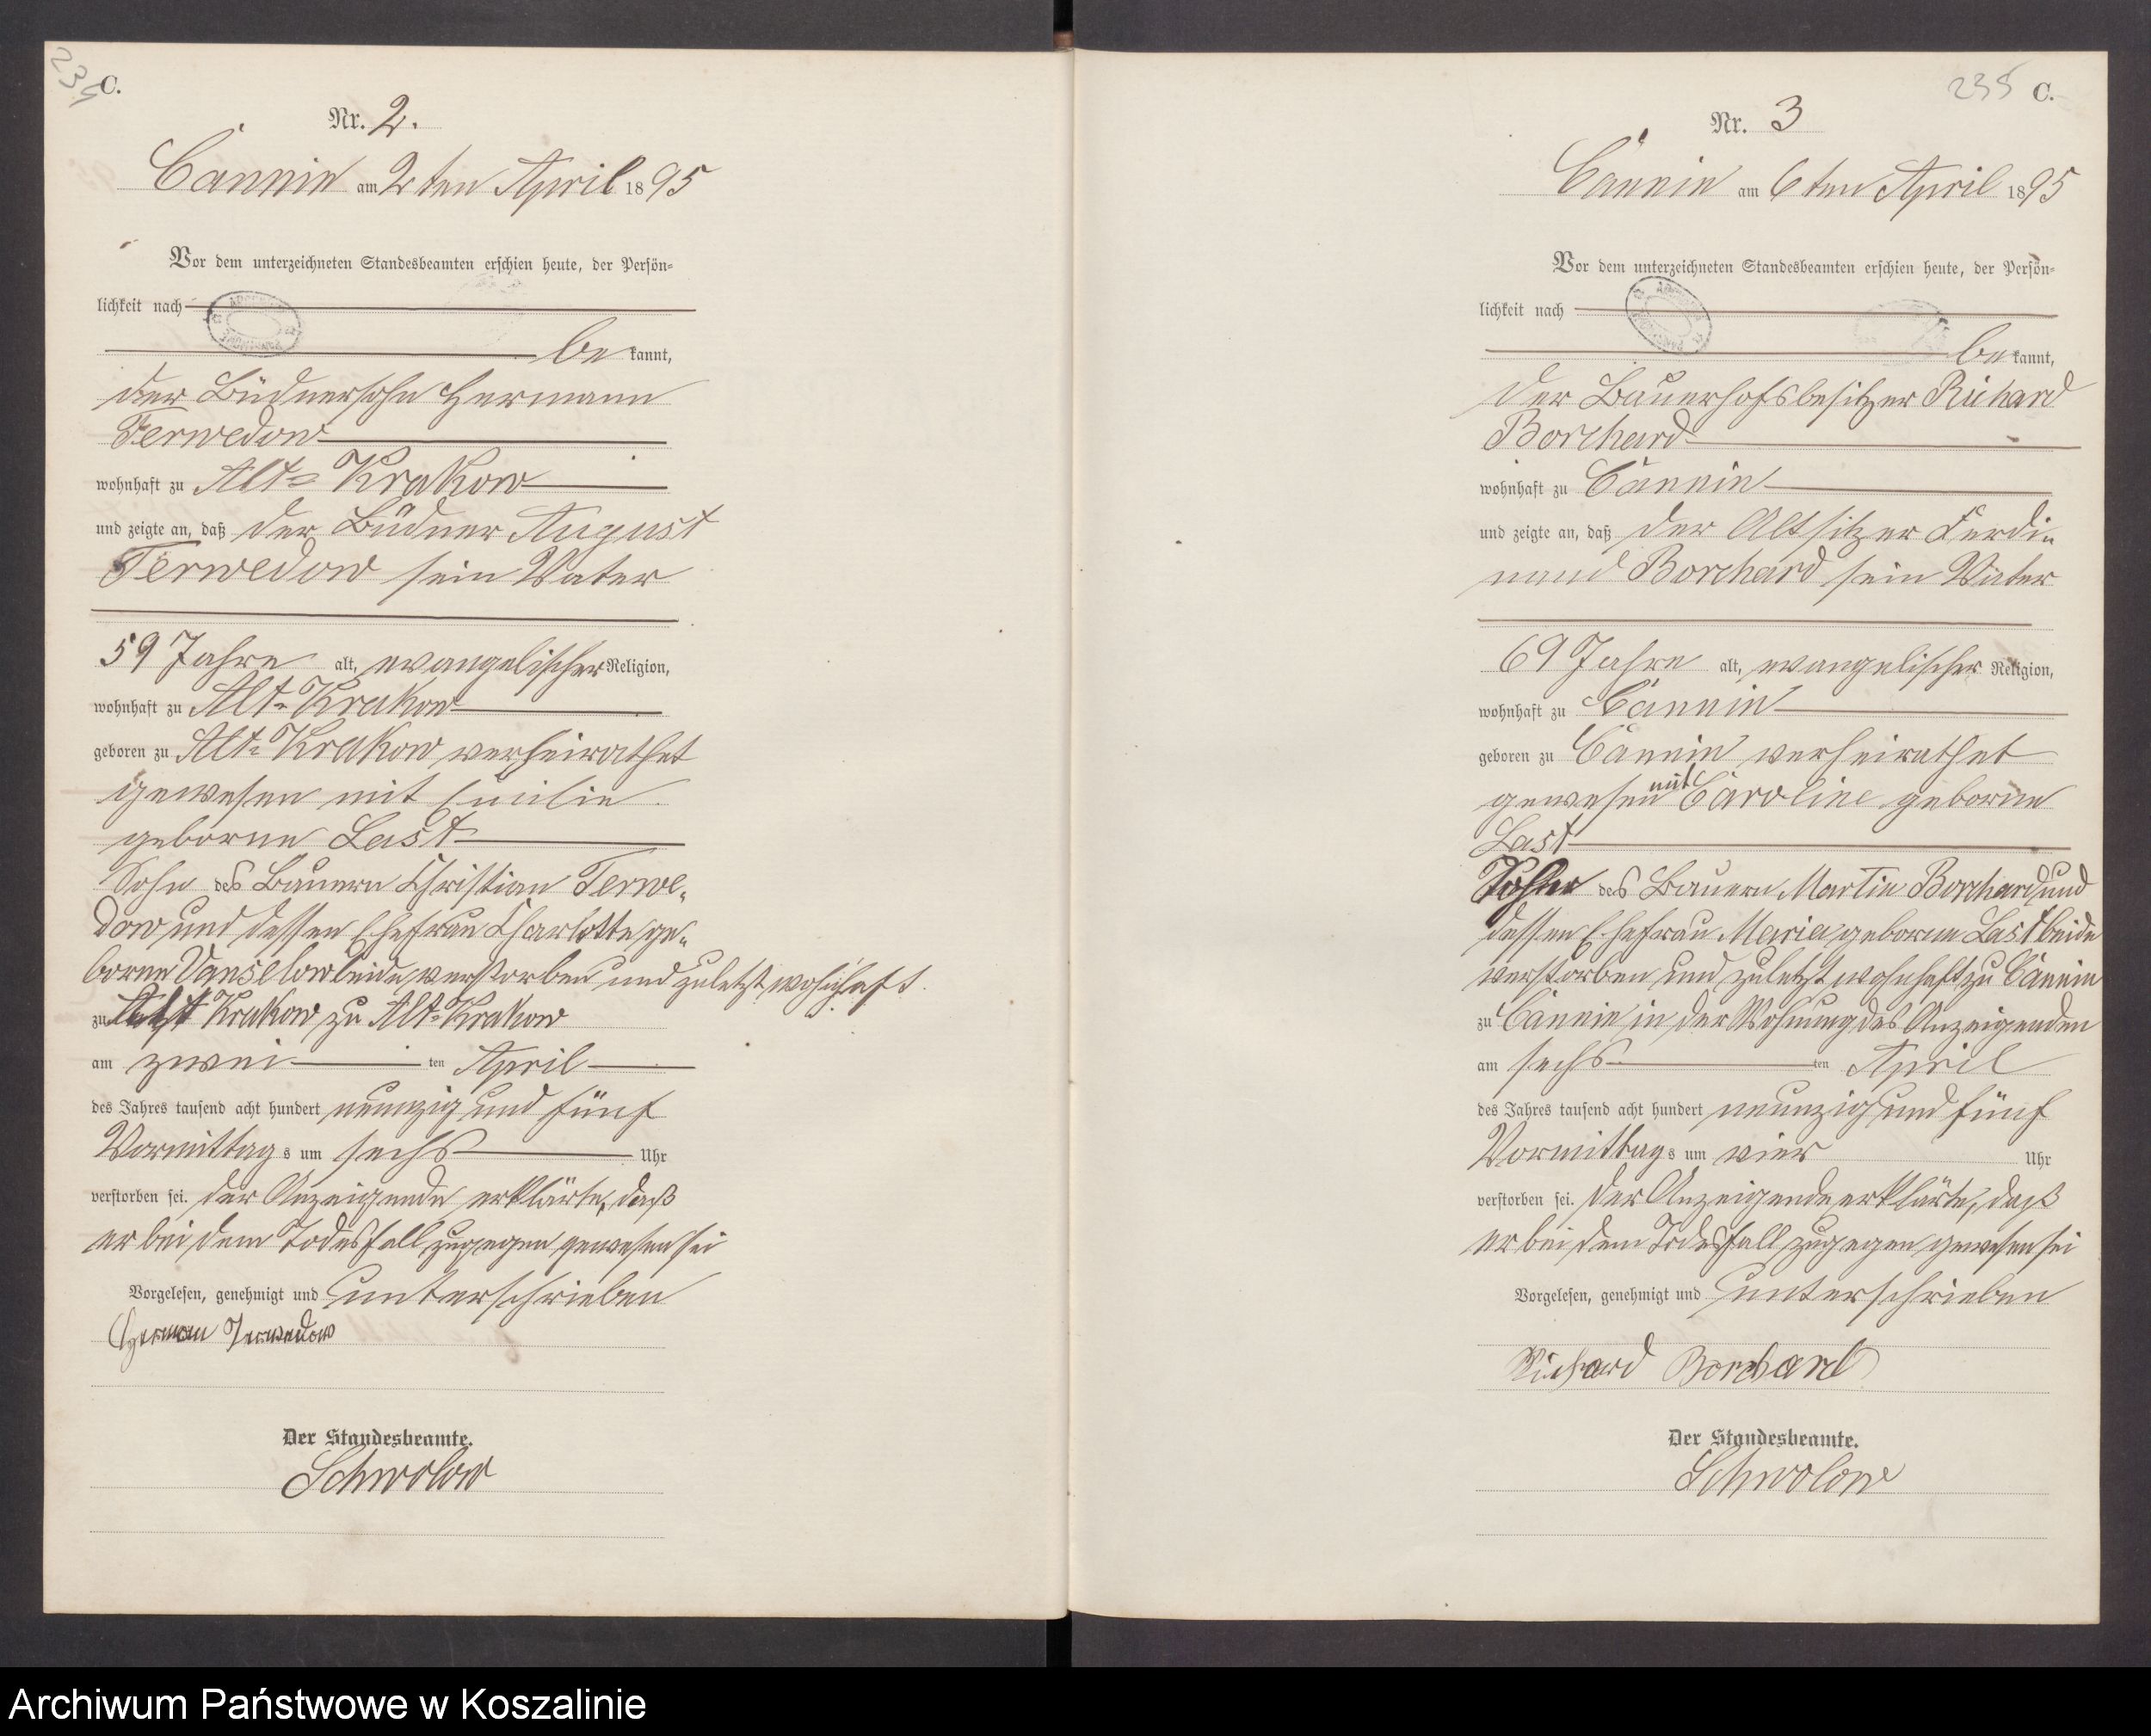 234
C.
Nr. 2.
Cännin am 2ten April 1895
Vor dem unterzeichneten Standesbeamten erschien heute, der Persön-
lichkeit nach
be kannt,
der Büdnersohn Hermann
Terwedow
wohnhaft zu Alt- Krakow
und zeigte an, daß der Büdner August
Terwedow sein Vater
59 Jahre alt, evangelischer Religion,
wohnhaft zu Alt-Krakow
geboren zu Alt-Krakow verheirathet
gewesen mit Emilie
geborne Last
Sohn des Bauern Christian Terwe-
dow und dessen Ehefrau Charlotte ge-
borne Vanselow beide verstorben und zuletzt wohnhaft
zu Alt Krakow zu Alt-Krakow
am zwei ten April
des Jahres tausend acht hundert neunzig und fünf
Vormittag s um sechs Uhr
verstorben sei. Der Anzeigende erklärte, daß
er bei dem Todesfall zugegen gewesen sei
Vorgelesen, genehmigt und unterschrieben
Herman Terwedow
Der Standesbeamte.
Schwolow
235 C.
Nr. 3
Cännin am 6ten April 1895
Vor dem unterzeichneten Standesbeamten erschien heute, der Persön-
lichkeit nach
be kannt,
der Bauerhofsbesitzer Richard
Borchard
wohnhaft zu Cännin
und zeigte an, daß der Altsitzer Ferdi-
nand Borchard sein Vater
69 Jahre alt, evangelischer Religion,
wohnhaft zu Cännin
geboren zu Cännin verheirathet
gewesen mit Caroline geborne
Last
des Bauern Martin Borchard und
dessen Ehefrau Maria geborne Last beide
verstorben und zuletzt wohnhaft zu Cännin
zu Cännin in der Wohnung des Anzeigenden
am sechs ten April
des Jahres tausend acht hundert neunzig und fünf
Vormittag s um vier Uhr
verstorben sei. Der Anzeigende erklärte, daß
er bei dem Todesfall zugegen gewesen sei
Vorgelesen, genehmigt und unterschrieben
Richard Borchard
Der Standesbeamte.
Schwolow
Archiwum Państwowe w Koszalinie